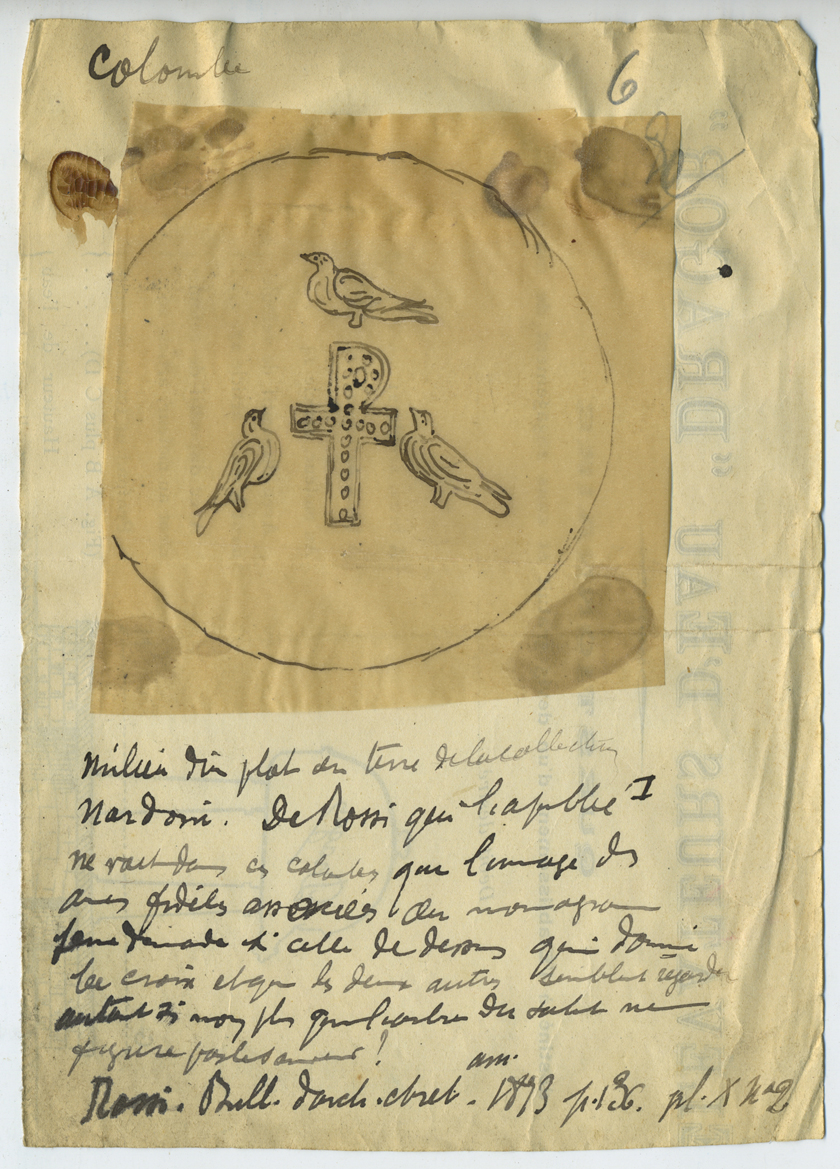 Colombe
6
milieu d'un plat en terre de la collection
Nardoni. De Rossi qui l'a publié I
ne voit dans ces colombes que l'image des
ames fidèles associés au monogramme
demande si celle de dessus qui domine
la croix et que les deux autres semblent regarder
du
figure pas le sauveur !
Rossi. Bull. d'arch. chret. ann. 1873 p. 136. pl. X nº 2
"DRAGOR"
D'EAU